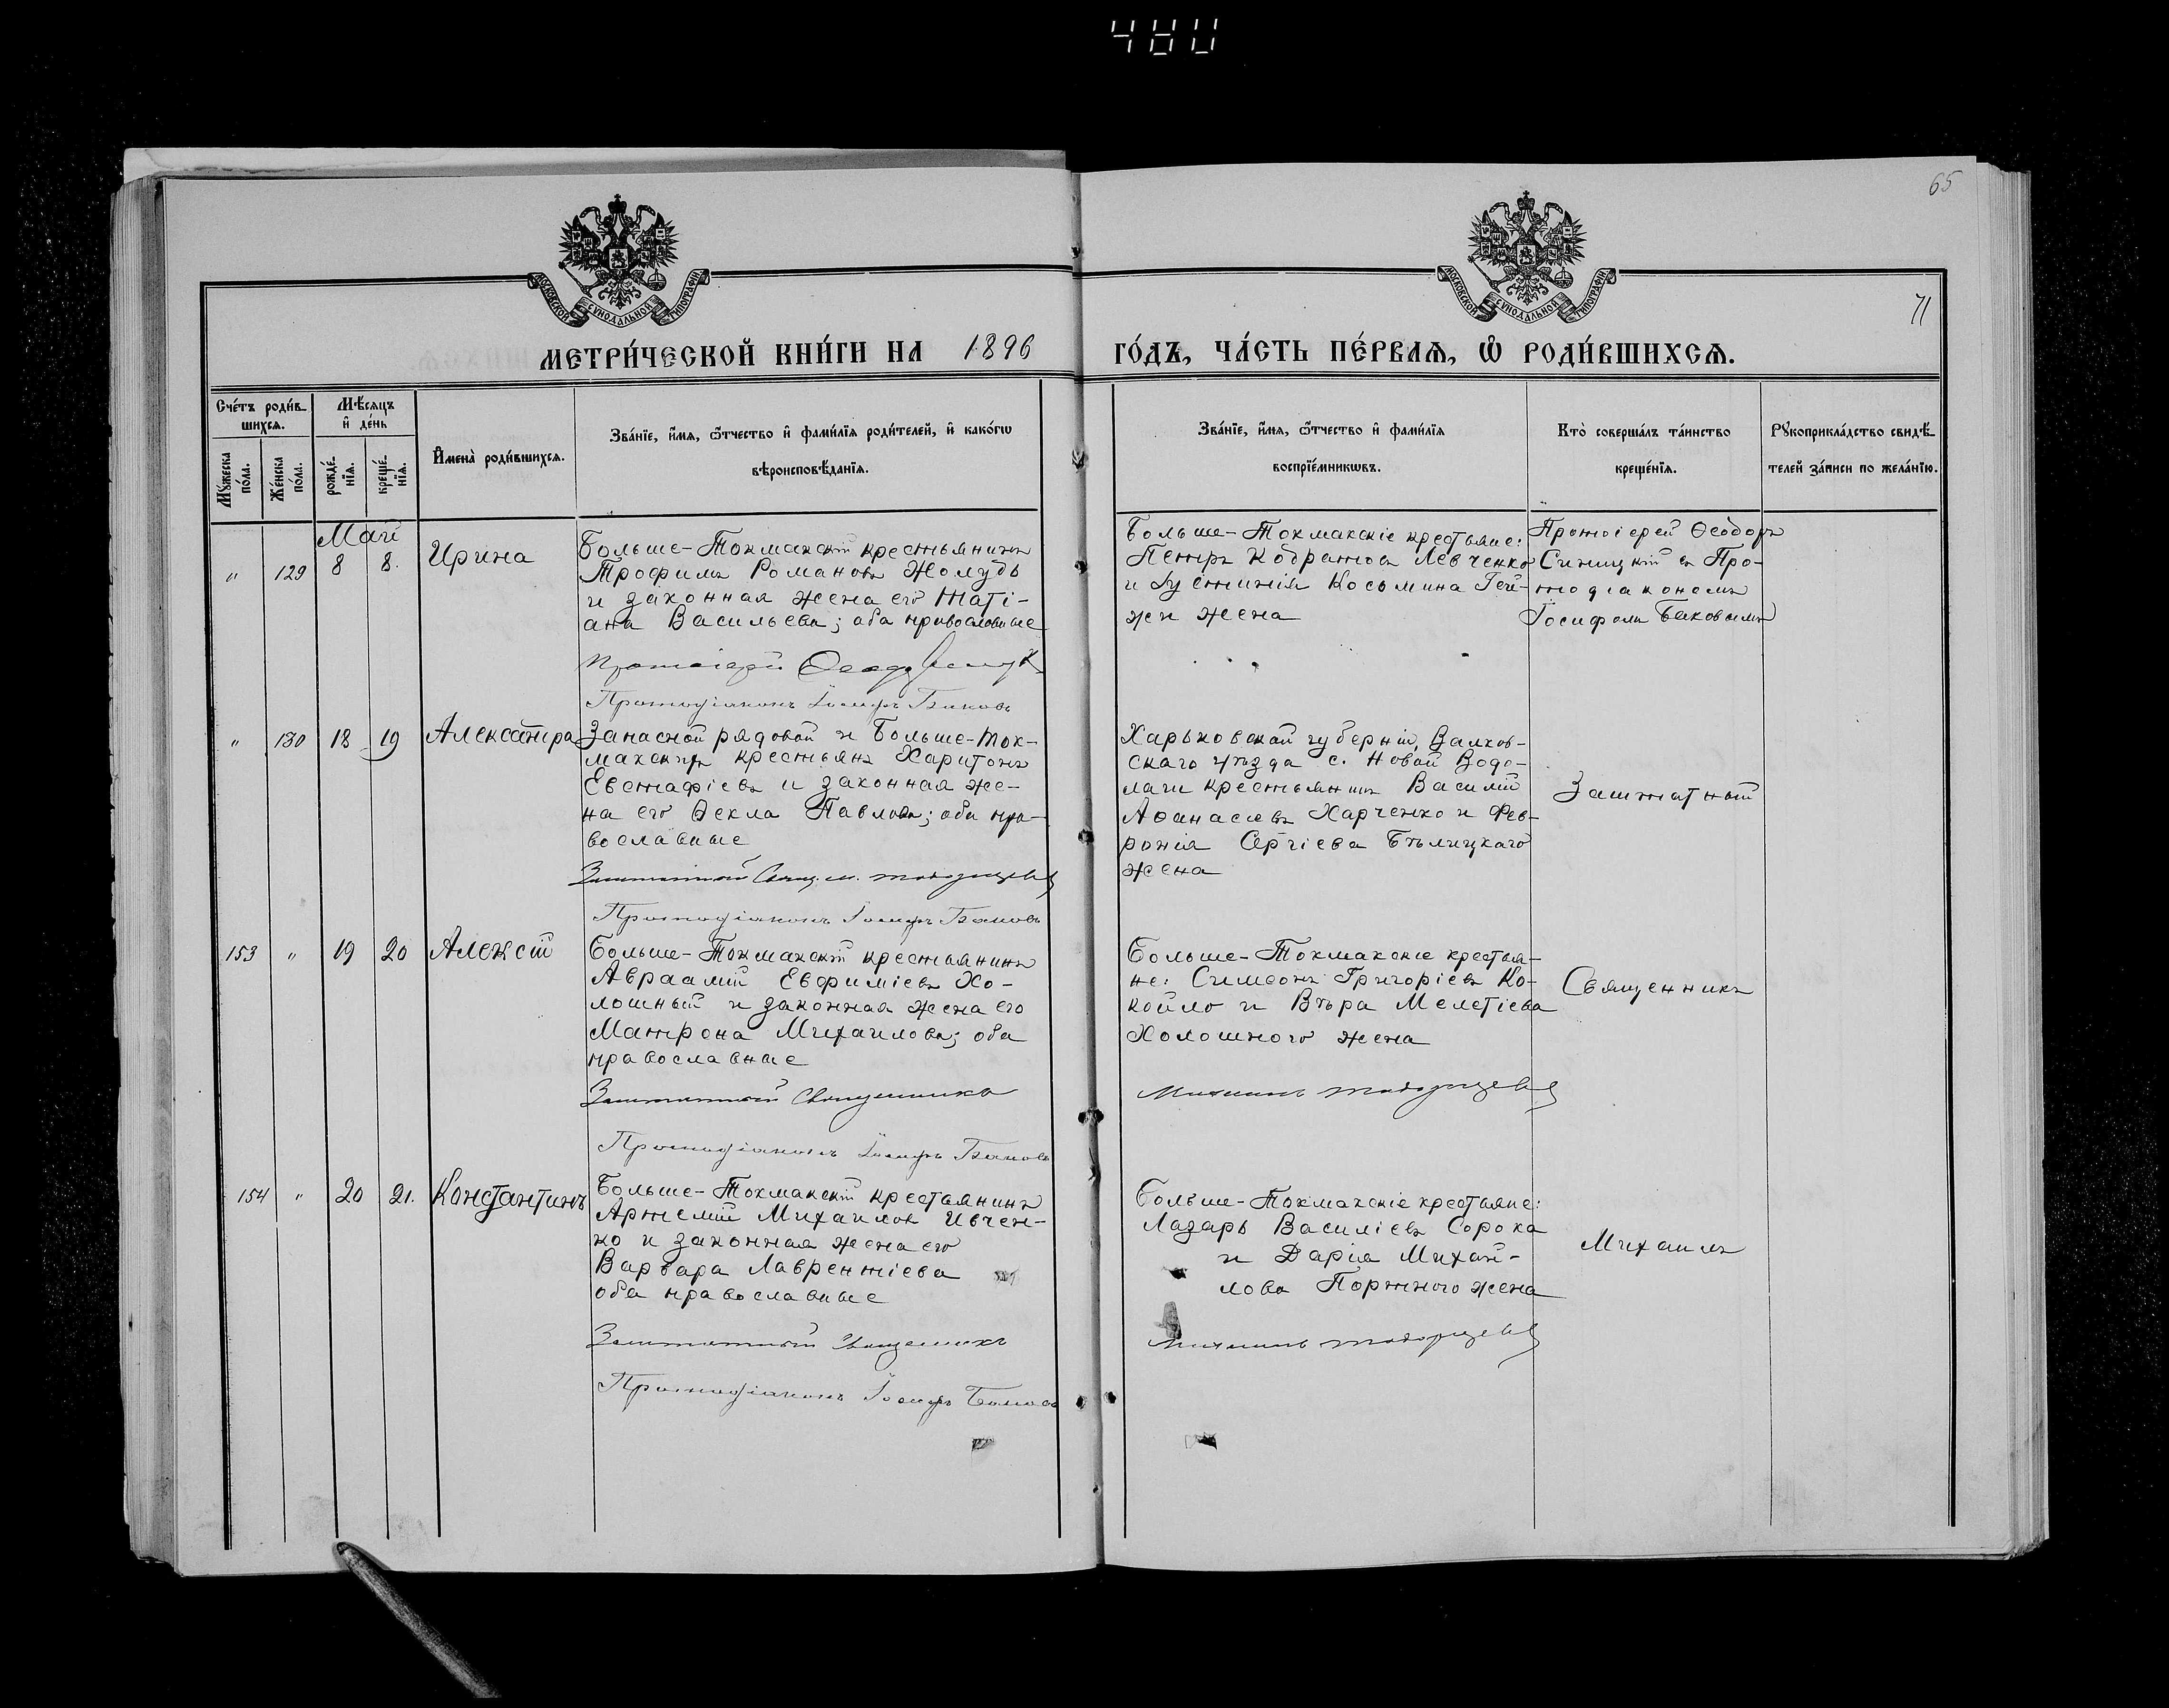 480
65
71
МОСКОВСКОЙ СУНОДАЛЬНОЙ ТИПОГРАФІИ
МОСКОВСКОЙ СУНОДАЛЬНОЙ ТИПОГРАФІИ
МЕТРИ́ЧЕСКОЙ КНИ́ГИ НА 1896
ГО́ДЪ, ЧА́СТЬ ПЕ́РВАѦ, Ѽ РОДИ́ВШИХСѦ.
Сче́тъ роди́в-
шихсѧ.
Мꙋжеска по́ла.
Же́нска по́ла.
Мѣ́сѧцъ
и҆ де́нь
рожде́-
нїѧ.
креще́-
нїѧ.
И҆мена̀ роди́вшихсѧ.
Зва́нїе, и҆́мѧ, ѻ҆́тчество и҆ фами́лїѧ роди́телей, и҆ како́гѡ
вѣроисповѣ́данїѧ.
Зва́нїе, и҆́мѧ, ѻ҆́тчество и҆ фами́лїѧ
воспрїе́мникѡвъ.
Кто̀ соверша́лъ та́инство
креще́нїѧ.
Рꙋкоприкла́дство свидѣ́-
телей за́писи по жела́нїю.
Май
" 129 8 8. Ирина
Больше-Токмакскій крестьянинъ
Трофимъ Романовъ Жолудь
и законная жена его Таті-
ана Васильева; оба православные
Протоіерей Ѳеодоръ
Протодіаконъ Іосифъ Баковъ
Больше-Токмакскіе крестьяне:
Петръ Кодратовъ Левченко
и Іустинія Косьмина Гей-
жи жена
Протоіерей Ѳеодоръ
Синицкій съ Про-
тодіакономъ
Іосифомъ Баковымъ
" 130 18 19 Александра
Запасной рядовой и Больше-Ток-
макскихъ крестьянъ Харитонъ
Евстафіевъ и законная же-
на его Ѳекла Павлова; оба пра-
вославные
Заштатный Свящ. М.
Протодіаконъ Іосифъ Баковъ
Харьковской губерніи, Валков-
скаго уѣзда с. Новой Водо-
лаги крестьянинъ Василій
Аѳанасіевъ Харченко и Фев-
ронія Сергіева Бѣлицкаго
жена
Заштатный
153 " 19 20 Алексій
Больше-Токмакскій крестьянинъ
Авраамій Евфиміевъ Хо-
лошный и законная жена его
Матрона Михаилова; оба
православные
Заштатный Священникъ
Протодіаконъ Іосифъ Баковъ
Больше-Токмакскіе крестья-
не: Симеонъ Григоріевъ Ко-
койло и Вѣра Мелетіева
Холошного жена
Михаилъ
Священникъ
154 " 20 21. Константинъ
Больше-Токмакскій крестьянинъ
Артемій Михаиловъ Ивчен-
ко и законная жена его
Варвара Лаврентіева
оба православные
Заштатный Священникъ
Протодіаконъ Іосифъ Баковъ
Больше-Токмакскіе крестьяне:
Лазарь Василіевъ Сорока
и Дарія Михай-
лова Портного жена
Михаилъ
Михаилъ